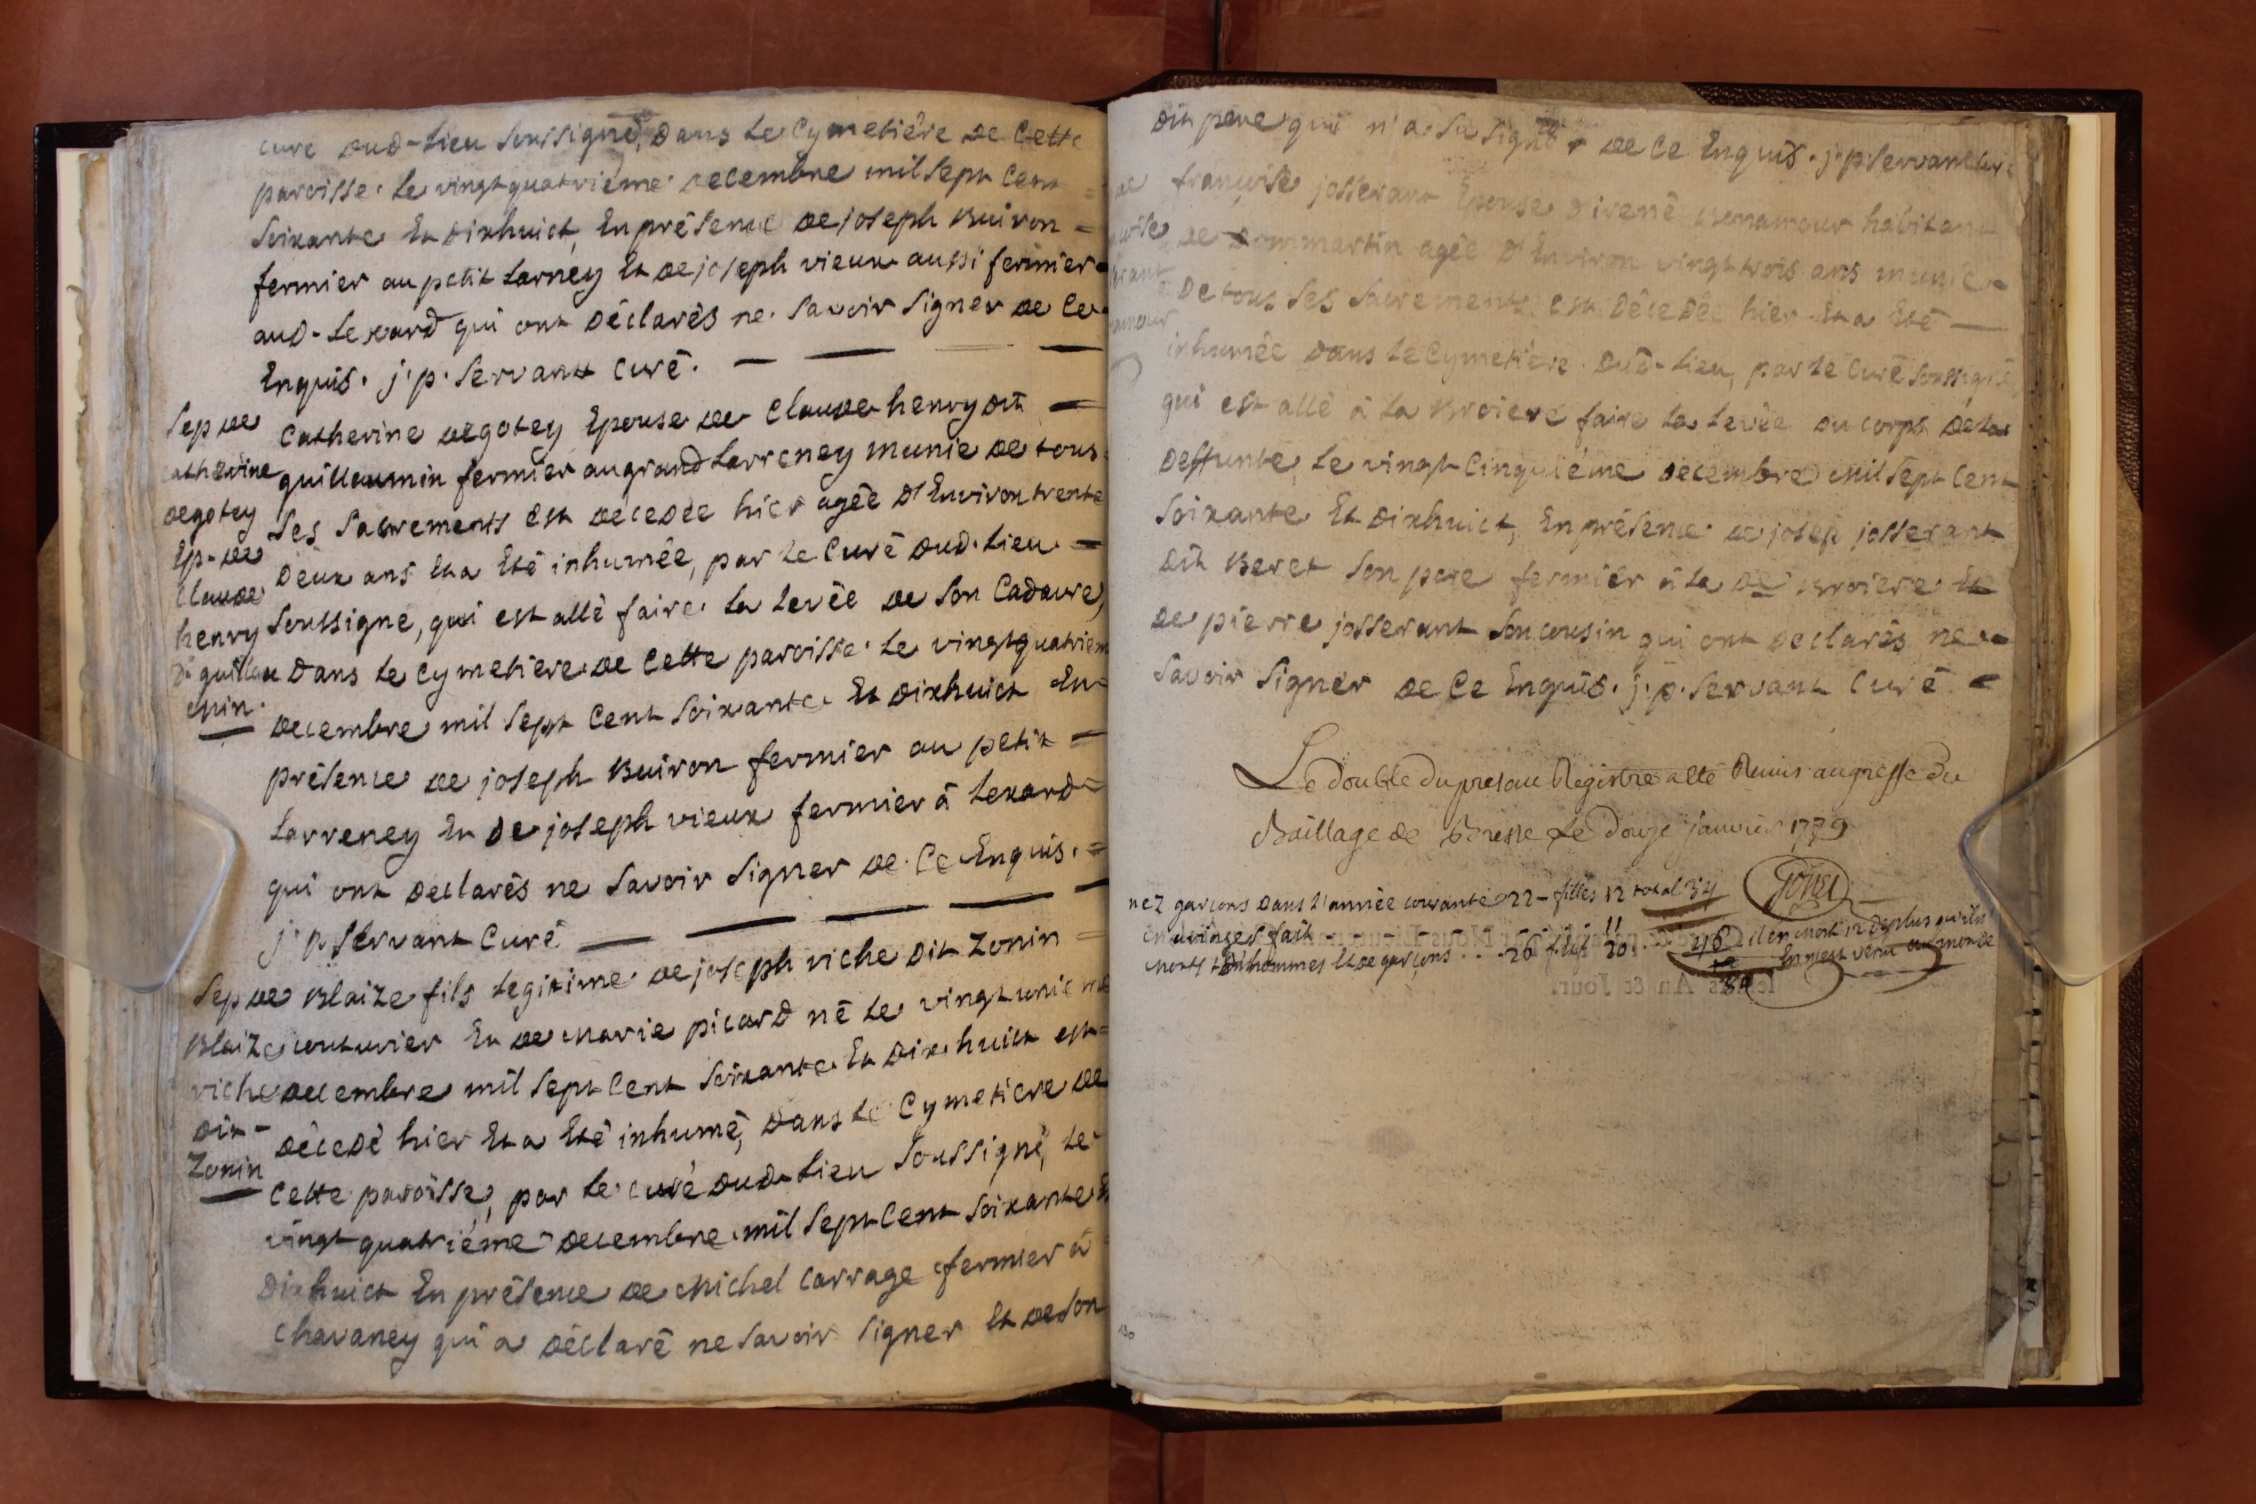 curé dud-lieu soussigné, dans le cymetiére de cette
paroisse. le vingtquatriéme decembre mil sept cent =
soixante et dixhuict, en présence de joseph buiron =
fermier au petit larney et de joseph vieux aussi fermier
aud-lexard qui ont déclarés ne savoir signer de ce
enquis. j. p. servant curé.
Sep de
catherine
degotey
ep-de
claude
henry
dt guillau
min.
catherine degotey epouse de claude henry dit
guillaumin fermier au grand larreney munie de tous
ses sacrements est décédée hier agée d'environ trente
deux ans et a eté inhumée, par le curé dud. lieu
soussigné, qui est allé faire la levée de son cadavre,
dans le cymetiere de cette paroisse. le vingtquatriem
decembre mil sept cent soixante et dixhuict en
présence de joseph buiron fermier au petit
larreney et de joseph vieux fermier à lexard
qui ont declarés ne savoir signer de ce enquis.
j. p. servant curé
Sep de
blaize
viche
dit
zonin
blaize fils legitime de joseph viche dit zonin
couturier et de marie picard né le vingtunieme
decembre mil sept cent soixante et dix huict est
décedé hier et a eté inhumé, dans le cymetiere de
cette paroisse, par le curé dud lieu soussigné, le
vingt quatriéme decembre mil sept cent soixante et
dixhuict en présence de michel carrage fermier à
chavaney qui a déclaré ne savoir signer et de son
dit pere qui n'a su signé de ce enquis. j. p. servant curé
françoise josserant epouse d'irené bonamour habitant
de dommartin agée d'environ vingt trois ans munie
de tous ses sacrements est décedée hier et a eté
inhumée dans le cymetiére dud-lieu, par le curé soussigné
qui est allé à la broiere faire la levée du corps de la
deffunte, le vingt cinquiéme decembre mil sept cent
soixante et dixhuict, en présence de josep josserant
dit beret son pere fermier à la de broiere et
de pierre josserant son cousin qui ont declarés ne
savoir signer de ce enquis. j. p. servant curé
Le double du presant Registre a eté Remis au greffe du
Baillage de Bresse Le douze janvier 1779
nez garçons dans l'année courante 22 - filles 12 total 34
mariages fait 11
morts d'hommes et de garçons 26 f et f 20. 46 il en mort 12 de plus qu'ils
n'en est venu au monde